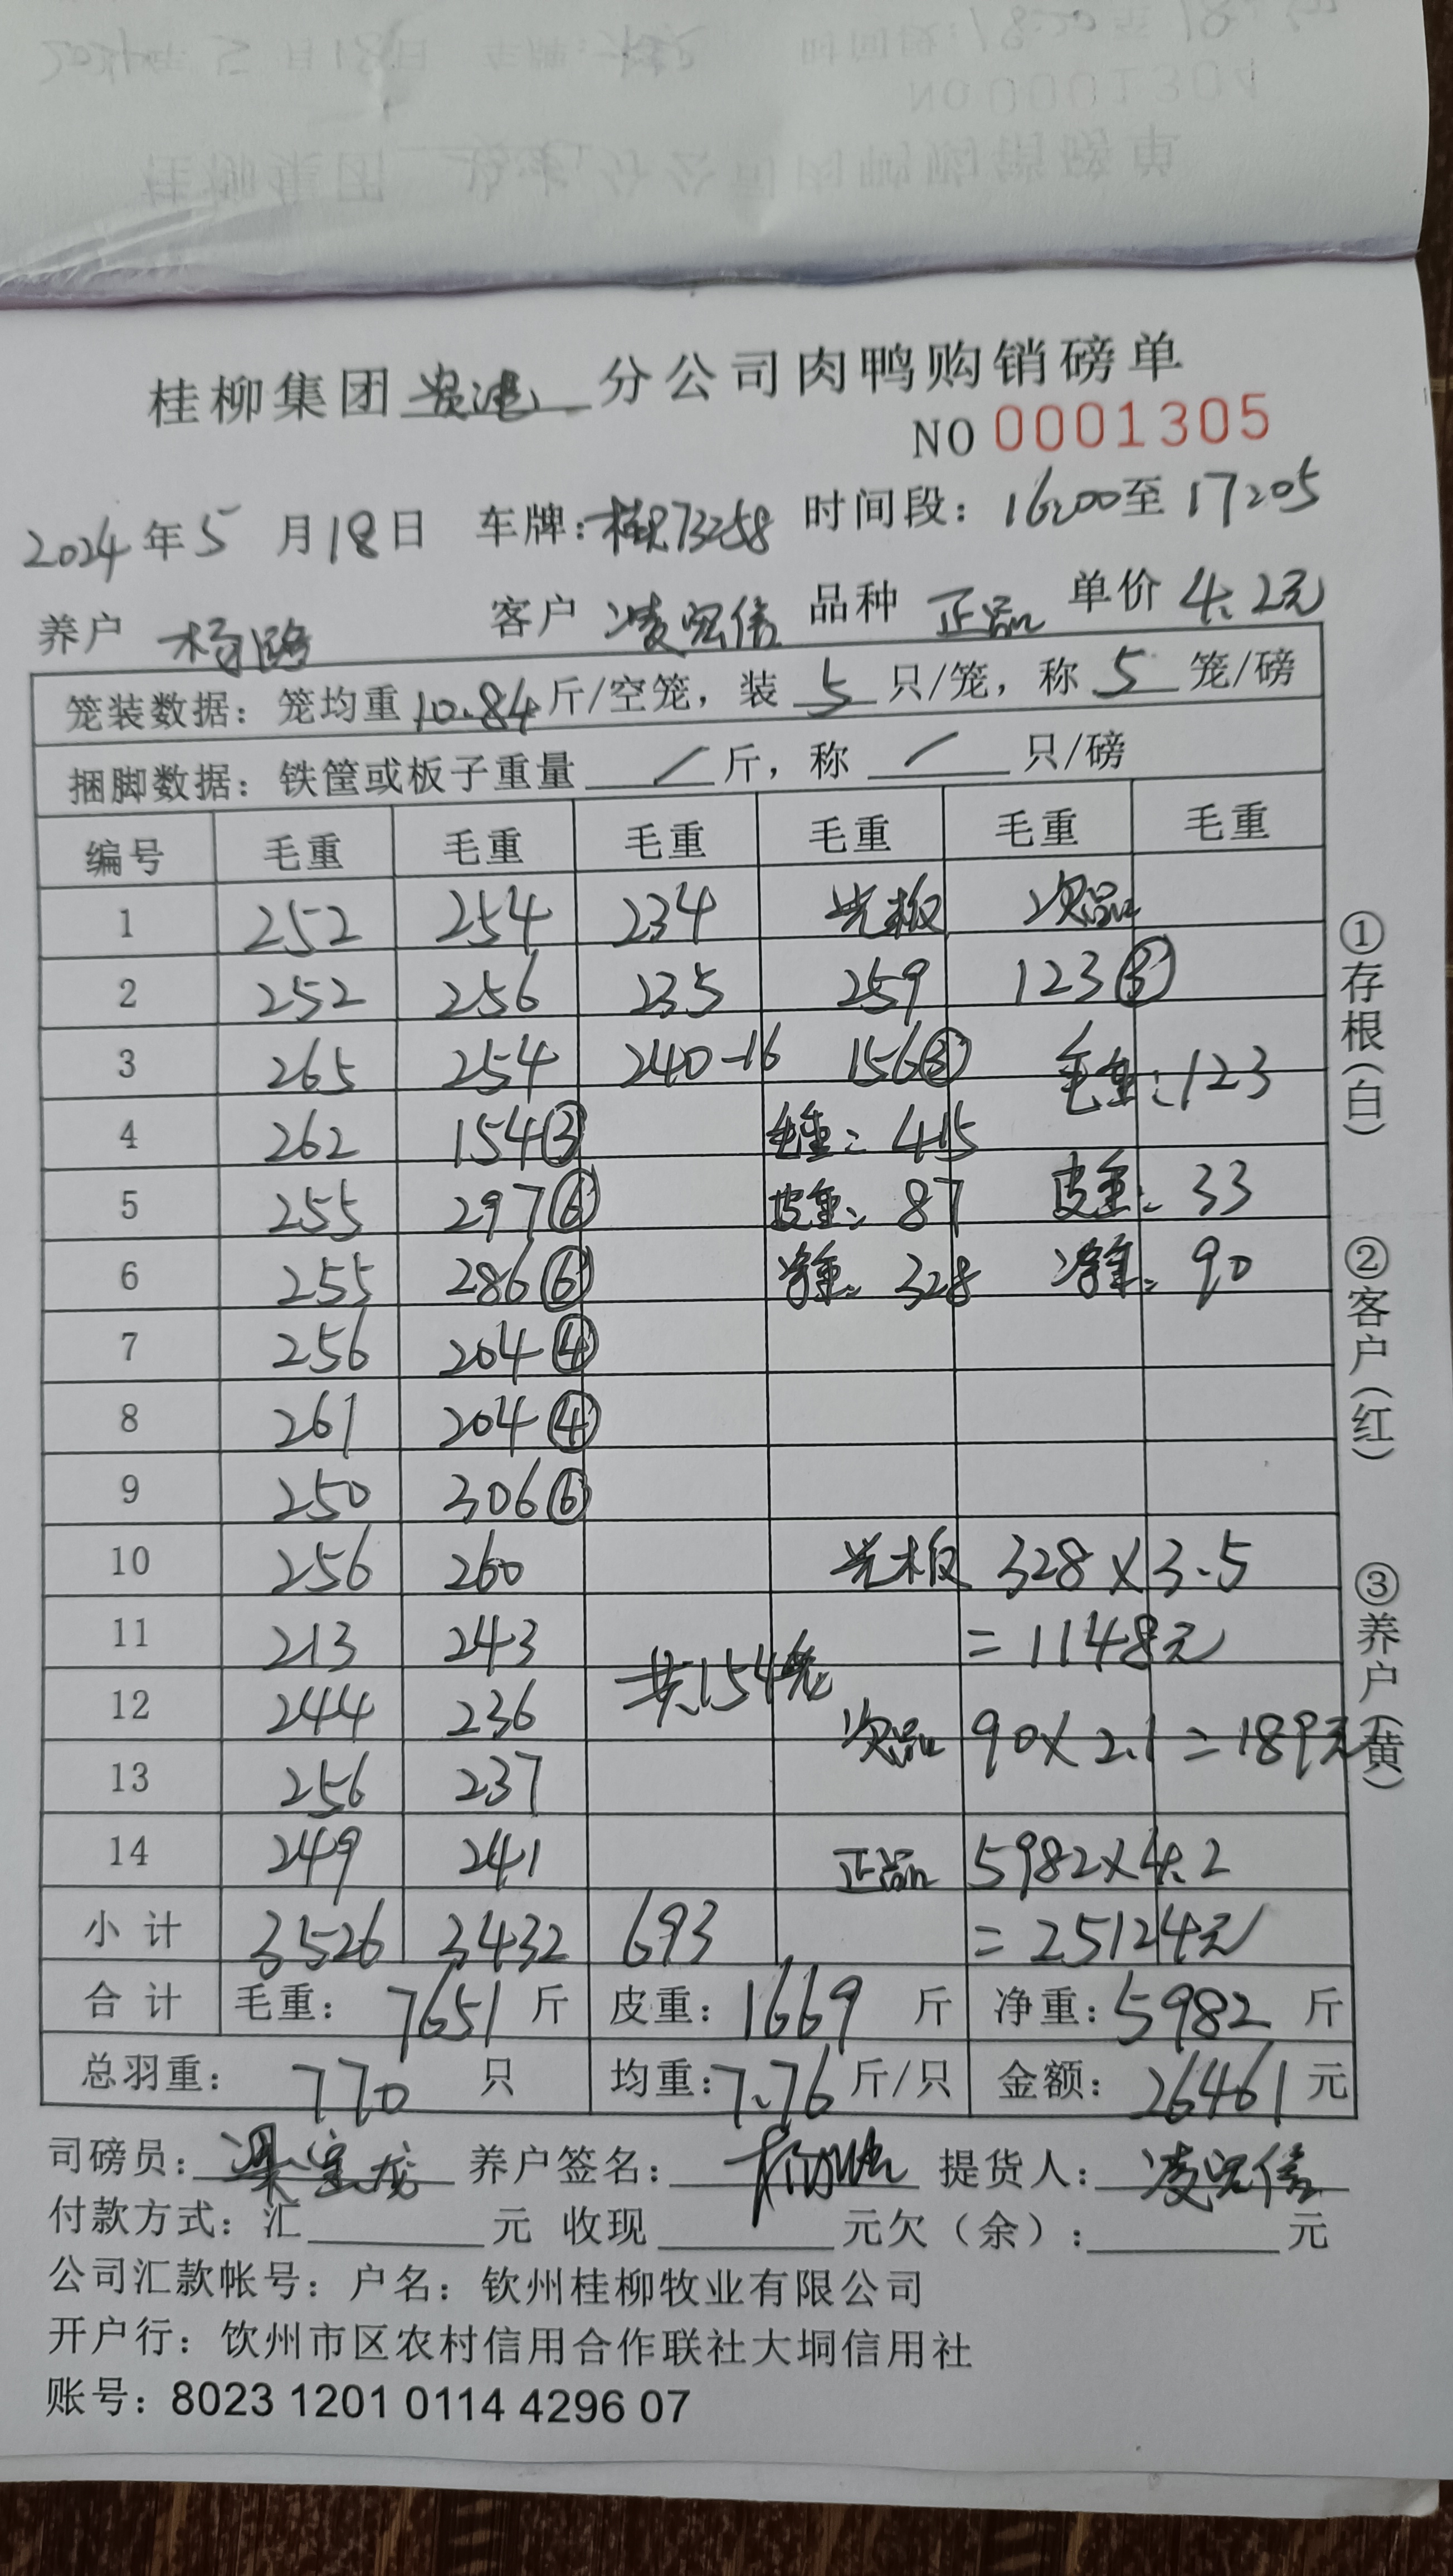 桂柳集团贵港分公司肉鸭购销磅单
NO 0001305
2024年5月18日 车牌:桂R73258 时间段：16:00至17:05
养户 杨 客户 凌宏信 品种 正品 单价 4.2元
笼装数据：笼均重10.84斤/空笼，装 5 只/笼，称 5 笼/磅
捆脚数据：铁筐或板子重量 / 斤，称 / 只/磅
编号 毛重 毛重 毛重 毛重 毛重 毛重
1 252 254 234 光板 次品
2 252 256 235 259 123③
3 265 254 240-16 156③ 毛重:123
4 262 154③ 毛重:415
5 255 297⑥ 皮重:87 皮重:33
6 255 286⑥ 净重:328 净重:90
7 256 204④
8 261 204④
9 250 306⑥
10 256 260 光板 328×3.5
11 213 243 共154笼 =1148元
12 244 236 次品 90×2.1=189元
13 256 237
14 249 241 正品 5982×4.2
小计 3526 3432 693 =25124元
合计 毛重：7651斤 皮重：1669斤 净重：5982斤
总羽重：770只 均重：7.76斤/只 金额：26461元
司磅员：梁宝龙 养户签名： 提货人：凌宏信
付款方式：汇 元 收现 元欠（余）： 元
公司汇款帐号：户名：钦州桂柳牧业有限公司
开户行：钦州市区农村信用合作联社大垌信用社
账号：8023 1201 0114 4296 07
①存根（白）
②客户（红）
③养户（黄）